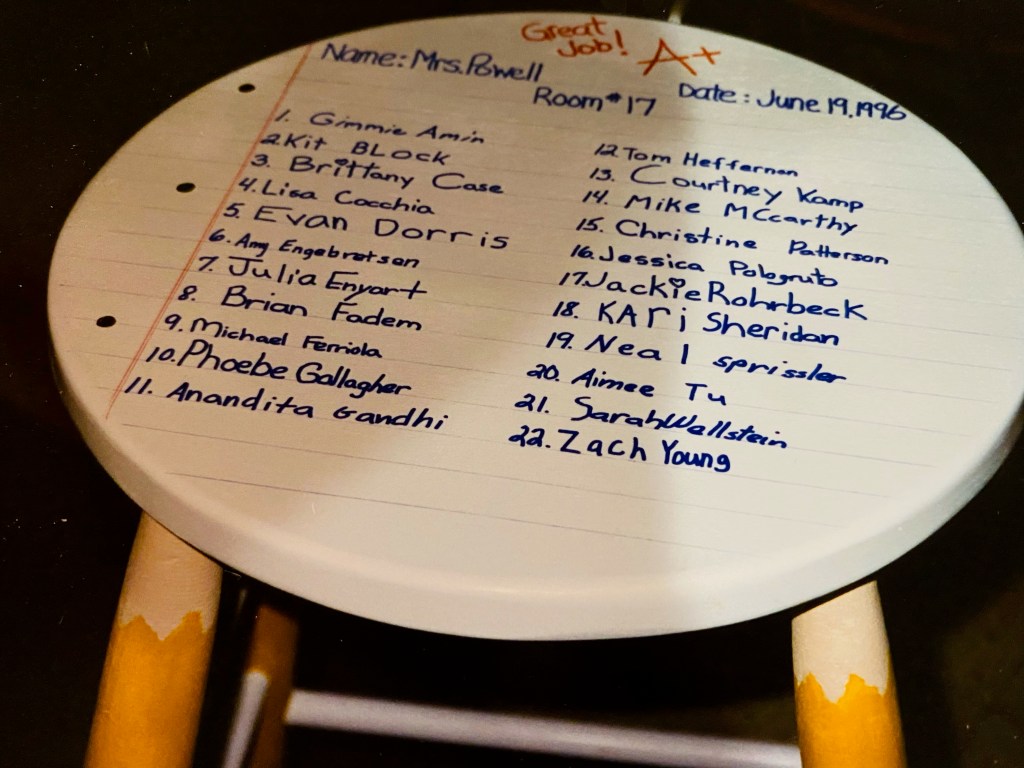 Great
Job! A+
Name: Mrs. Powell
Room #17
Date: June 19, 1996
1. Gimmie Amin
2. Kit BLock
3. Brittany Case
4. Lisa Cacchia
5. Evan Dorris
6. Amy Engebretsen
7. Julia Enyart
8. Brian Fadem
9. Michael Ferriola
10. Phoebe Gallagher
11. Anandita Gandhi
12. Tom Heffernan
13. Courtney Kamp
14. Mike MCcarthy
15. Christine Patterson
16. Jessica Polognuto
17. Jackie Rohrbeck
18. KAri Sheridan
19. Neal sprissler
20. Aimee Tu
21. Sarah Wallstein
22. Zach Young